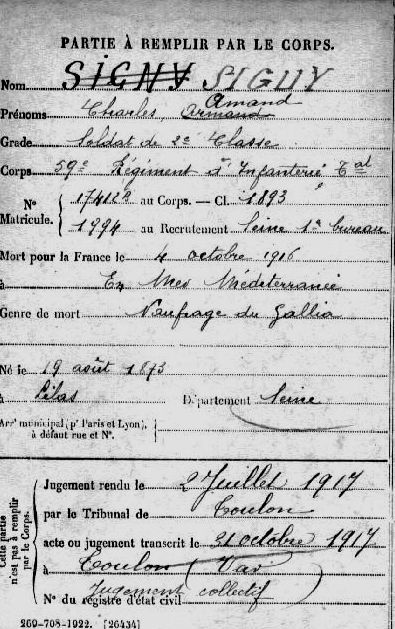 PARTIE À REMPLIR PAR LE CORPS.
Nom SIGNY SIGUY
Amand
Prénoms Charles, Armand
Grade Soldat de 2e Classe
Corps 59e Régiment d'Infanterie Tal
No 17412 au Corps. — Cl. 1893
Matricule. 1994 au Recrutement Seine 1er bureau
Mort pour la France le 4 octobre 1916
à En Mer Méditerranée
Genre de mort Naufrage du Gallia
Né le 19 août 1873
à Lilas Département Seine
Arrt municipal (pr Paris et Lyon),
à défaut rue et No.
Cette partie
n'est pas à remplir
par le Corps.
Jugement rendu le 2 Juillet 1917
par le Tribunal de Toulon
acte ou jugement transcrit le 31 octobre 1917
à Toulon (Var)
No du registre d'état civil Jugement collectif
269-708-1922. [26434]